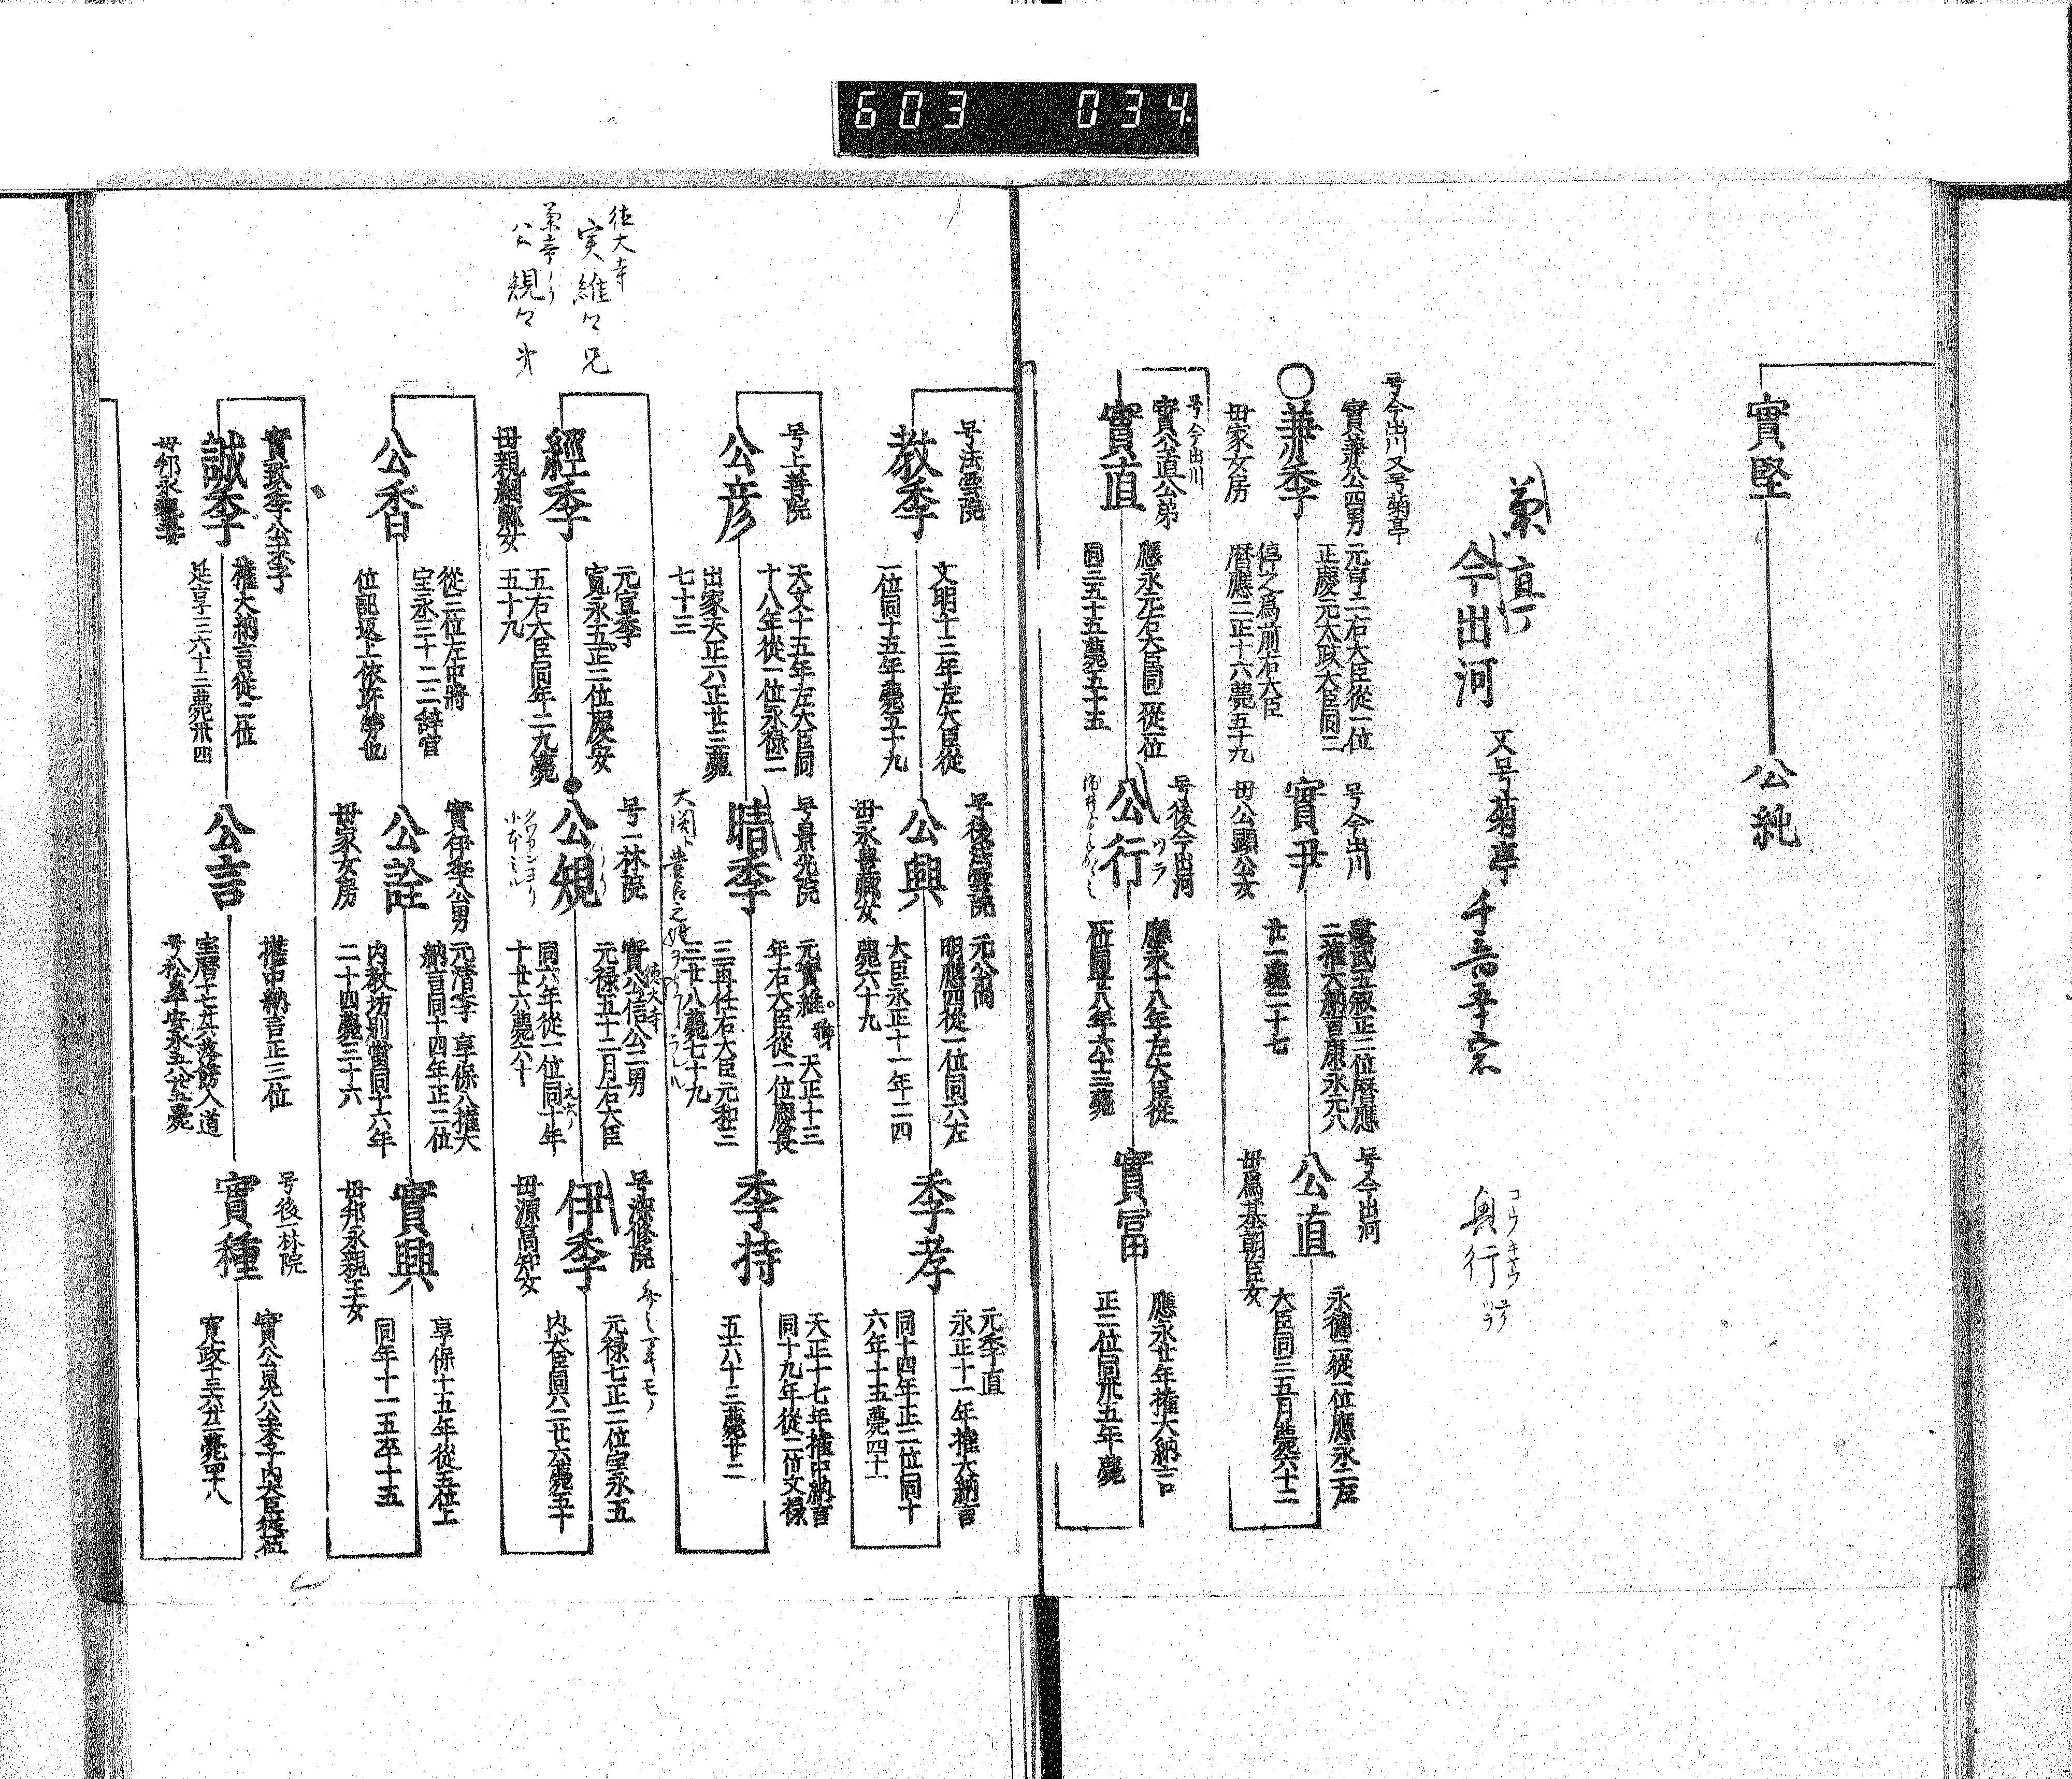 603 034
實堅
公純
菊亭
今出河
又号菊亭
千三百五十五石
興行
コウキヤウ
号今出川又号菊亭
實兼公四男
兼季
母家女房
元亨二右大臣從一位
正慶元太政大臣同二
停之爲前右大臣
暦應二正十六薨五十九
号今出川
實尹
母公顯公女
建武五叙正二位暦應
二權大納言康永元八
廿一薨二十七
号今出河
公直
母爲基朝臣女
永德二從一位應永二左
大臣同三五月薨六十二
号今出川
實公直公弟
實直
應永元右大臣同二從一位
同三五十五薨五十五
号後今出河
公行
ツラ
應永十八年左大臣從
一位同廿八年六十三薨
實富
應永廿年權大納言
正二位同卅五年薨
号法雲院
教季
文明十三年左大臣從
一位同十五年薨五十九
号後法雲院
公興
母永豊卿女
元公尚
明應四從一位同六左
大臣永正十一年二四
薨六十九
季孝
元季直
永正十一年權大納言
同十四年正二位同十
六年十五薨四十一
号上善院
公彦
天文十五年左大臣同
十八年從一位永祿二
出家天正六正廿三薨
七十三
号景光院
晴季
元實維 天正十三
年右大臣從一位慶長
三再任右大臣元和三
三廿八薨七十九
季持
天正十七年權中納言
同十九年從二位文祿
五六十三薨廿二
徳大寺
実維々兄
菊亭
公規々弟
經季
母親綱卿女
元宣季
寛永五正二位慶安
五右大臣同年二九薨
五十九
号一林院
公規
實公信公二男
徳大寺
元祿五十二月右大臣
同六年從一位同十年
十廿六薨六十
号深修院
伊季
母源高知女
元祿七正二位宝永五
内大臣同六二廿六薨五十
公香
從三位左中將
宝永三十二二辞官
位記返上依所勞也
實伊季公男
公詮
母家女房
元清季 享保八權大
納言同十四年正二位
内教坊別當同十六年
二十四薨三十六
實興
母邦永親王女
享保十五年從五位上
同年十一五卒十五
實致季公末子
誠季
母邦永親王女
權大納言從二位
延享三六十三薨卅四
公言
權中納言正三位
号後一林院
實種
實公晃公末子内大臣從一位
寛政十三六廿二薨四十八